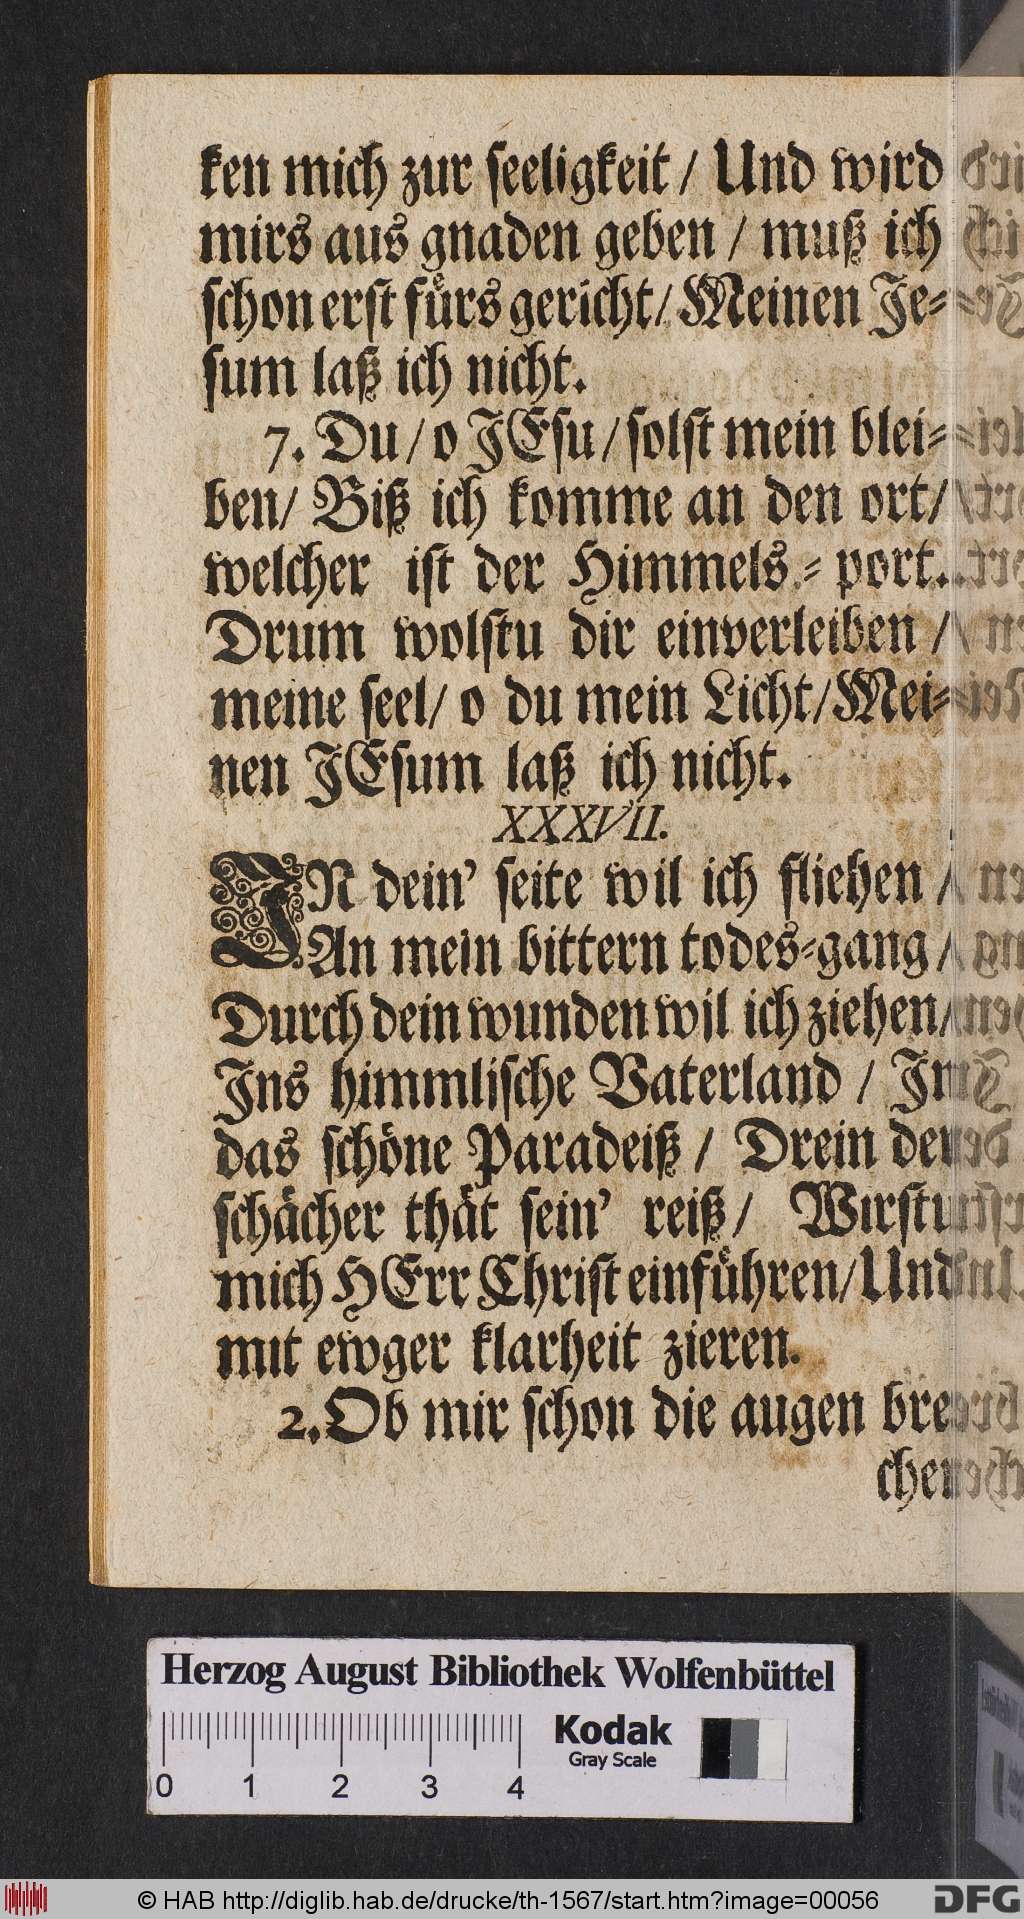 ken mich zur seeligkeit / Und wird
mirs aus gnaden geben / muß ich
schon erst fürs gericht / Meinen Je-
sum laß ich nicht.
7. Du / o JEsu / solst mein blei-
ben / Biß ich komme an den ort /
welcher ist der Himmels-port.
Drum wolstu dir einverleiben /
meine seel / o du mein Licht / Mei-
nen JEsum laß ich nicht.
XXXVII.
JN dein' seite wil ich fliehen /
An mein bittern todes-gang /
Durch dein wunden wil ich ziehen /
Ins himmlische Vaterland / In
das schöne Paradeiß / Drein der
schächer thät sein' reiß / Wirstu
mich HErr Christ einführen / Und
mit ewger klarheit zieren.
2. Ob mir schon die augen bre-
chen
Herzog August Bibliothek Wolfenbüttel
Kodak
Gray Scale
0 1 2 3 4
© HAB http://diglib.hab.de/drucke/th-1567/start.htm?image=00056
DFG